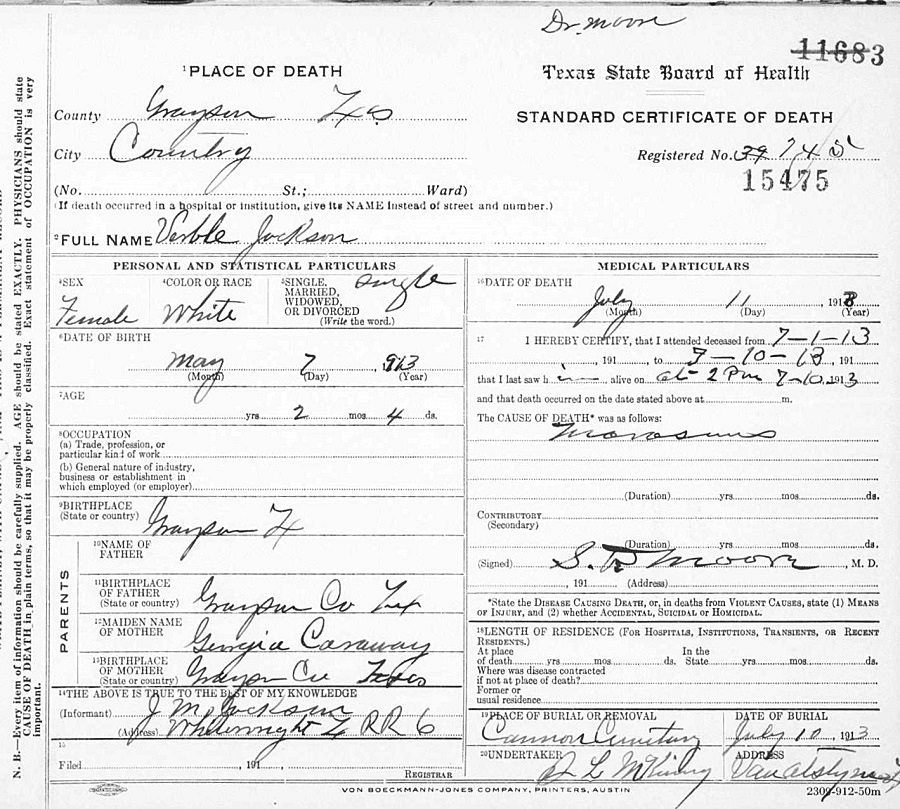 Dr. Moore
11683
1 PLACE OF DEATH
Texas State Board of Health
County Grayson Tex
STANDARD CERTIFICATE OF DEATH
City Country
Registered No. 39
15475
(No. St.; Ward)
(If death occurred in a hospital or institution, give its NAME instead of street and number.)
2 FULL NAME Verble Jackson
PERSONAL AND STATISTICAL PARTICULARS
3 SEX
Female
4 COLOR OR RACE
White
5 SINGLE, MARRIED, WIDOWED, OR DIVORCED
(Write the word.)
single
6 DATE OF BIRTH
May 7, 1913
(Month) (Day) (Year)
7 AGE
yrs 2 mos 4 ds.
8 OCCUPATION
(a) Trade, profession, or
particular kind of work
(b) General nature of industry,
business or establishment in
which employed (or employer)
9 BIRTHPLACE
(State or country) Grayson Tx
PARENTS
10 NAME OF
FATHER
11 BIRTHPLACE
OF FATHER
(State or country) Grayson Co Tex
12 MAIDEN NAME
OF MOTHER
Georgia Caraway
13 BIRTHPLACE
OF MOTHER
(State or country) Grayson Co Texas
14 THE ABOVE IS TRUE TO THE BEST OF MY KNOWLEDGE
(Informant) J M Jackson
(Address) Whitewright Tx RR 6
15
Filed , 191
REGISTRAR
MEDICAL PARTICULARS
16 DATE OF DEATH
July 11, 1913
(Month) (Day) (Year)
17 I HEREBY CERTIFY, that I attended deceased from 7-1-13
, 191 , to 7-10-13, 191
that I last saw h im alive on at 2 Pm 7-10, 1913
and that death occurred on the date stated above at m.
The CAUSE OF DEATH* was as follows:
Marasmus
(Duration) yrs mos ds.
CONTRIBUTORY
(Secondary)
(Duration) yrs mos ds.
(Signed) S. D Moore, M. D.
, 191 (Address)
*State the DISEASE CAUSING DEATH, or, in deaths from VIOLENT CAUSES, state (1) MEANS
OF INJURY, and (2) whether ACCIDENTAL, SUICIDAL or HOMICIDAL.
18 LENGTH OF RESIDENCE (FOR HOSPITALS, INSTITUTIONS, TRANSIENTS, OR RECENT
RESIDENTS.)
At place In the
of death yrs mos ds. State yrs mos ds.
Where was disease contracted
if not at place of death?
Former or
usual residence
19 PLACE OF BURIAL OR REMOVAL
Cannon Cemetary
DATE OF BURIAL
July 10, 1913
20 UNDERTAKER
J L McKinney
ADDRESS
Van Alstyne
VON BOECKMANN-JONES COMPANY, PRINTERS, AUSTIN
2309-912-50m
N. B.—Every item of information should be carefully supplied. AGE should be stated EXACTLY. PHYSICIANS should state
CAUSE OF DEATH in plain terms, so that it may be properly classified. Exact statement of OCCUPATION is very
important.